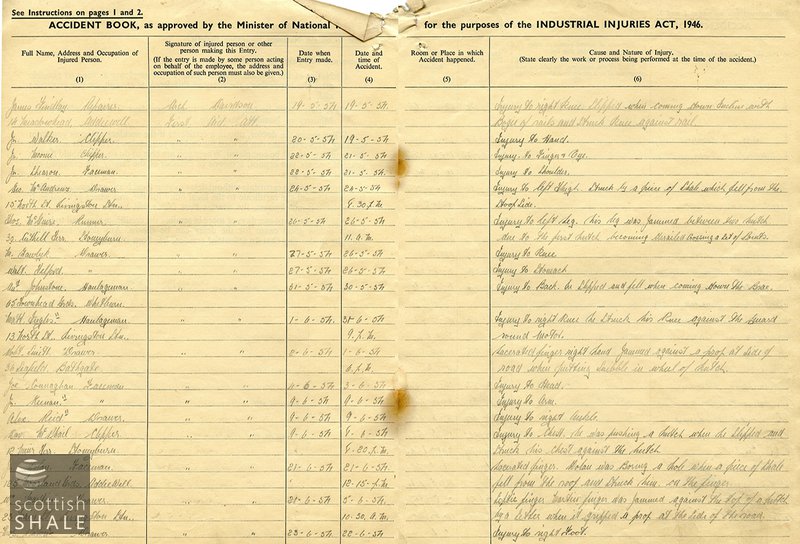 See Instructions on pages 1 and 2.
ACCIDENT BOOK, as approved by the Minister of National for the purposes of the INDUSTRIAL INJURIES ACT, 1946.
Full Name, Address and Occupation of Injured Person. (1)
Signature of injured person or other person making this Entry. (If the entry is made by some person acting on behalf of the employee, the address and occupation of such person must also be given.) (2)
Date when Entry made. (3)
Date and time of Accident. (4)
Room or Place in which Accident happened. (5)
Cause and Nature of Injury. (State clearly the work or process being performed at the time of the accident.) (6)
James 19-5-54 19-5-54 Injury to right Knee. Slipped when coming down Incline with
Addiewell First Aid Att Bogie of rails and struck Knee against rail
Jn. Walker Clipper " " 20-5-54 19-5-54 Injury to Hand.
Jn. Clipper. " " 22-5-54 21-5-54 Injury to Fingers
Jn. Faceman " " 22-5-54 21-5-54 Injury to Shoulder.
Drawer " " 24-5-54 24-5-54 Injury to left Thigh. Struck by a piece of Shale which fell from the
15 North St. Livingston Stn. 8.30 p.m.
Thos. McGuire Runner " " 26-5-54 26-5-54 Injury to left leg. His leg was jammed between two hutch
Terr. Stoneyburn 11. A.M. due to the first hutch becoming derailed
Drawer " " 27-5-54 26-5-54 Injury to Knee
Walt. Telford " " " 27-5-54 26-5-54 Injury to Stomach
Johnstone Haulageman " " 31-5-54 30-5-54 Injury to Back. He Slipped and fell when coming down the Brae.
65 Townhead Whitburn
Matt Haulageman " " 1-6-54 31-5-54 Injury to right Knee. He struck his Knee against the Guard
13 North St. Livingston Stn. 9. p.m. round Motor.
Robt. Smith Drawer " " 2-6-54 1-6-54 Lacerated finger right hand. Jammed against a prop at side of
Bathgate 6 p.m. road when putting in wheel of hutch.
Joe Connaghan Faceman " " 4-6-54 3-6-54 Injury to Head.
Jn. Keenan " " " 9-6-54 9-6-54 Injury to Arm.
Alex. Reid Drawer " " 9-6-54 9-6-54 Injury to right Ankle.
McPhail Clipper " " 9-6-54 8-6-54 Injury to Chest. He was pushing a hutch when he Slipped and
Terr. Stoneyburn " 8-20 p.m. Struck his chest against the hutch
Faceman " " 21-6-54 21-6-54 Lacerated finger. Nolan was Boring a hole when a piece of Shale
Addiewell " 12-15 p.m. fell from the roof and struck him on the finger.
Drawer " " 21-6-54 5-6-54 Little finger was jammed against the top of a hutch
Stn. 10-30 A.M. when it gripped a prop at the side of the road.
" " 23-6-54 22-6-54 Injury to right Foot.
scottish
SHALE